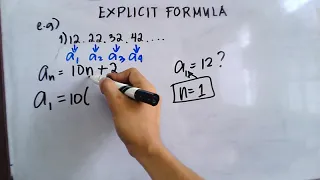 EXPLICIT FORMULA
e.g)
1) 12, 22, 32, 42, ....
a₁ a₂ a₃ a₄
aₙ = 10n + 2
a₁ = 12 ?
n = 1
a₁ = 10(